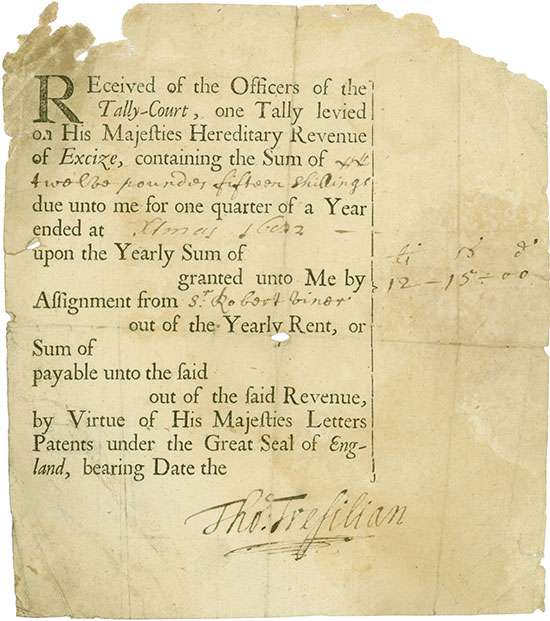 REceived of the Officers of the
Tally-Court, one Tally levied
on His Majeſties Hereditary Revenue
of Excize, containing the Sum of
twelve poundes fifteen shillings
due unto me for one quarter of a Year
ended at Xmas
upon the Yearly Sum of
li s d
granted unto Me by
12 - 15 - 00
Aſſignment from Sr. Robert Viner
out of the Yearly Rent, or
Sum of
payable unto the ſaid
out of the ſaid Revenue,
by Virtue of His Majeſties Letters
Patents under the Great Seal of Eng-
land, bearing Date the
Tho: Treſilian